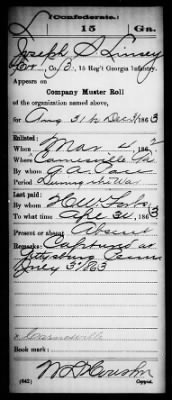 (Confederate.)
L 15 Ga.
Joseph S Linsey
Co. B, 15 Reg't Georgia Infantry.
Appears on
Company Muster Roll
of the organization named above,
for Aug 31 to Dec 31, 1863
Enlisted:
When Mar 4, 186
Where Carnesville Ga
By whom
Period During the War
Last paid:
By whom
To what time Apr 30, 1863
Present or absent Absent
Remarks: Captured at
Gettysburg Penn
July 3 1863
x Carnesville
Book mark:
(642) Copyist.